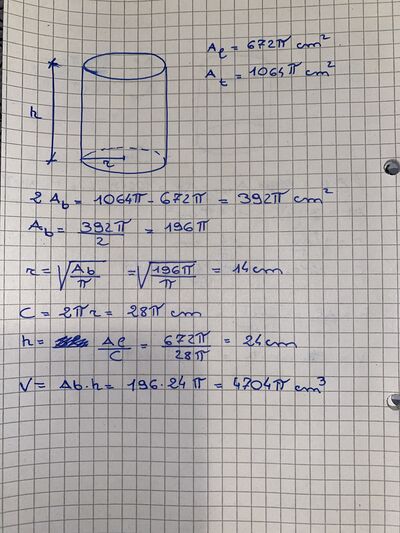 A_l = 672π cm²
A_t = 1064π cm²
h
r
2 A_b = 1064π - 672π = 392π cm²
A_b = 392π/2 = 196π
r = √(A_b/π) = √(196π/π) = 14 cm
C = 2πr = 28π cm
h = Al/C = 672π/28π = 24 cm
V = Ab·h = 196·24π = 4704π cm³